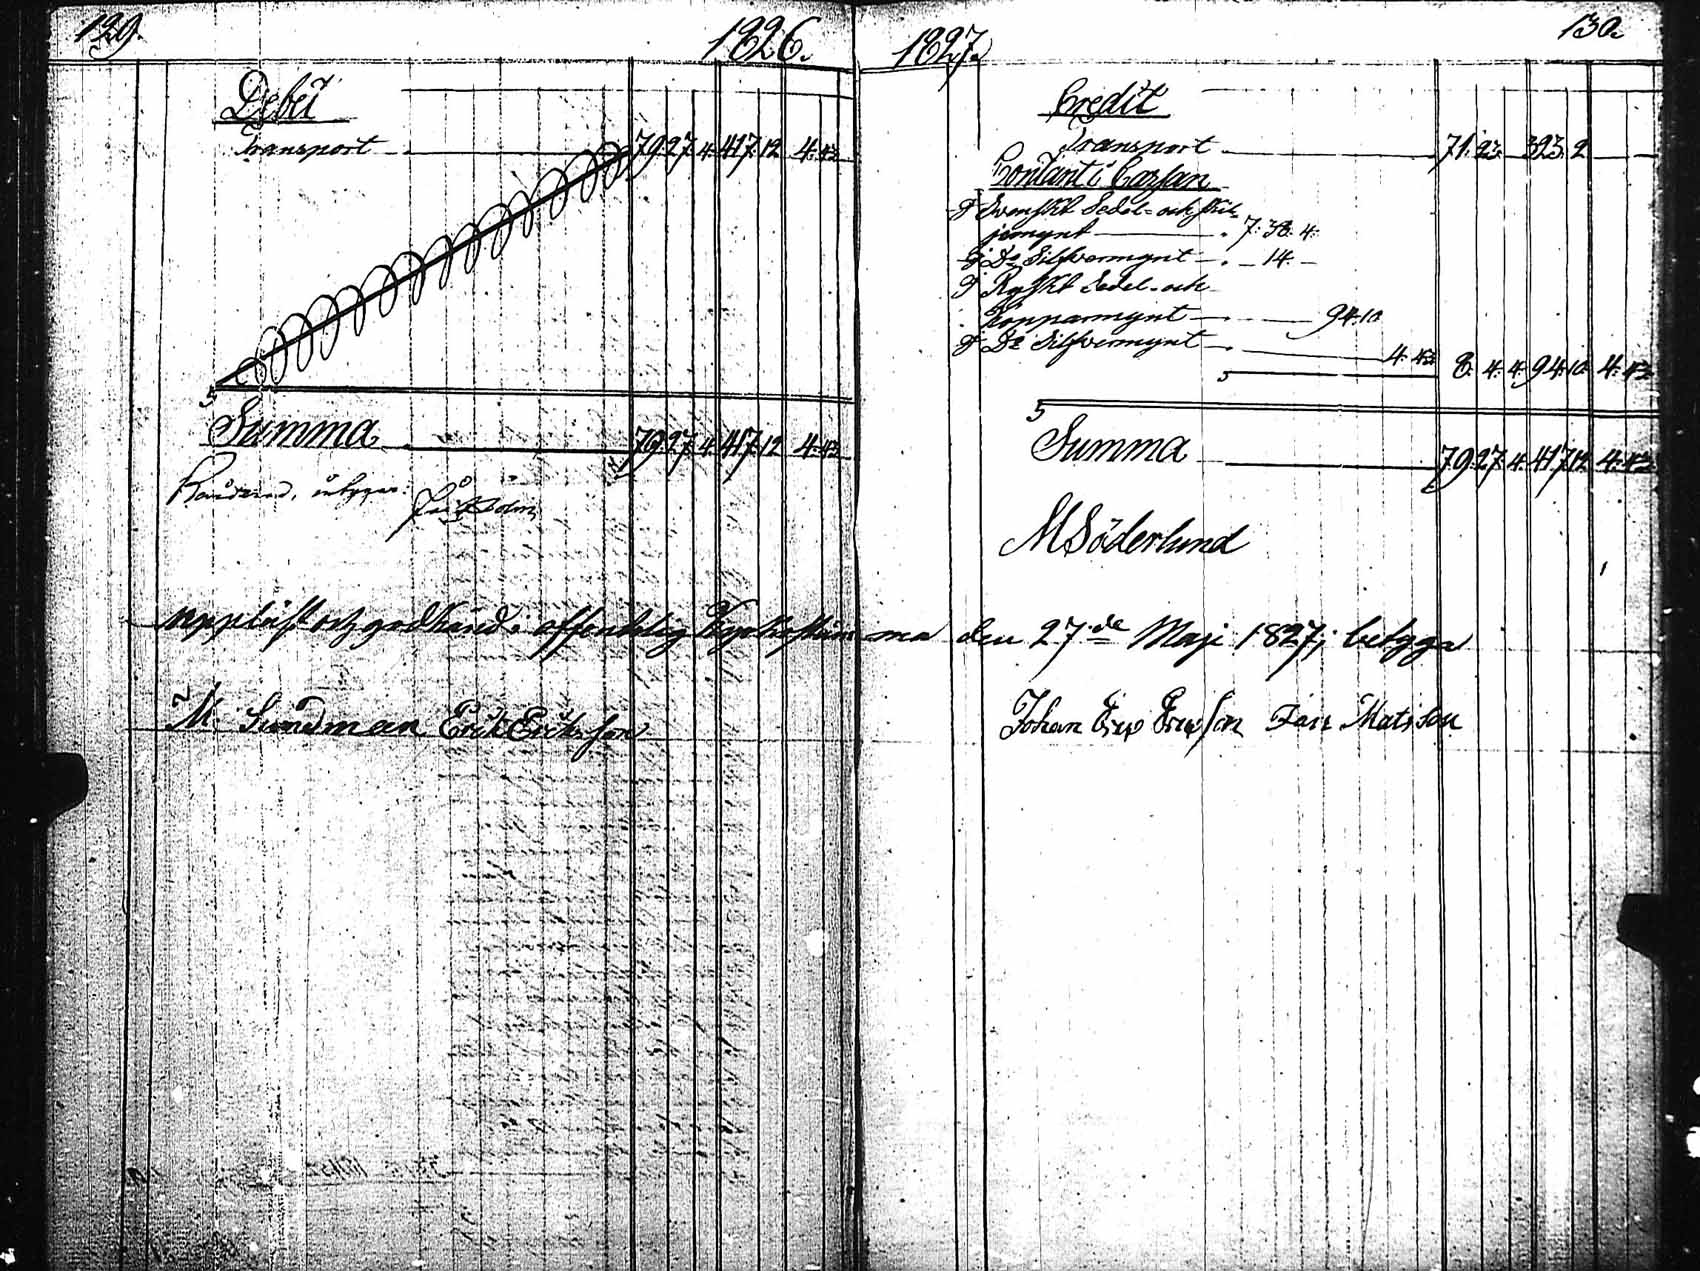 129.
1826.
Debet
Transport 79. 27. 4. 417. 12 4. 43
Summa 79. 27. 4. 417. 12 4. 43
M. Sundman Erik Ericksson
1827.
130.
Credit
Transport 71. 23. 323. 2
Contant i Cassan
Svenskt Sedel- och skil-
jemynt 7. 38. 4.
Do Silfvermynt 14.
Ryskt Sedel- och
Kopparmynt 94. 10
Do Silfvermynt 4. 43 8. 4. 4. 94. 10 4. 43
Summa 79. 27. 4. 417. 12 4. 43
M Söderlund
Uppläst och godkänd i offentelig Kyrkostämma den 27de Maji 1827; betyga
Johan Matsson